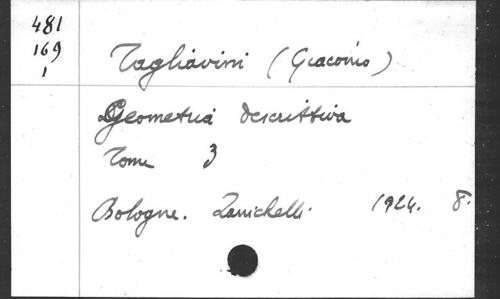 481
169
1
Tagliavini (Giacomo)
Geometria descrittiva
Tome 3
Bologne. Zanichelli. 1924. 8.